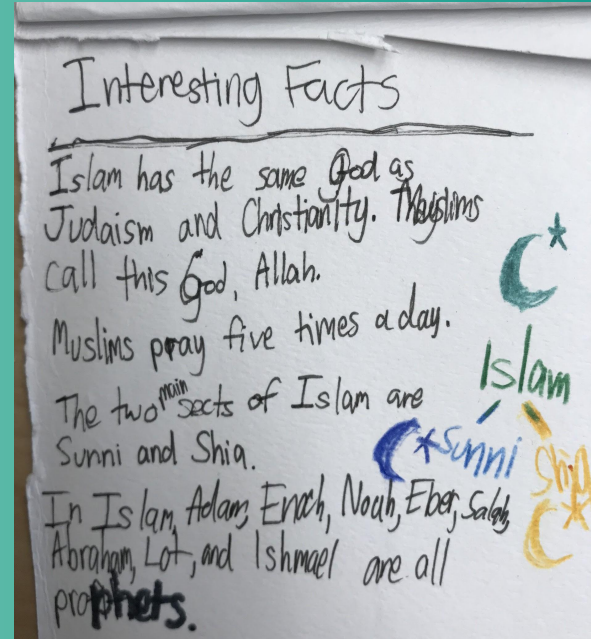 Interesting Facts
Islam has the same God as
Judaism and Christianity. Muslims
call this God, Allah.
Muslims pray five times a day.
The two main sects of Islam are
Sunni and Shia.
In Islam, Adam, Enoch, Noah, Eber, Salah,
Abraham, Lot, and Ishmael are all
prophets.
Islam
Sunni
Shia